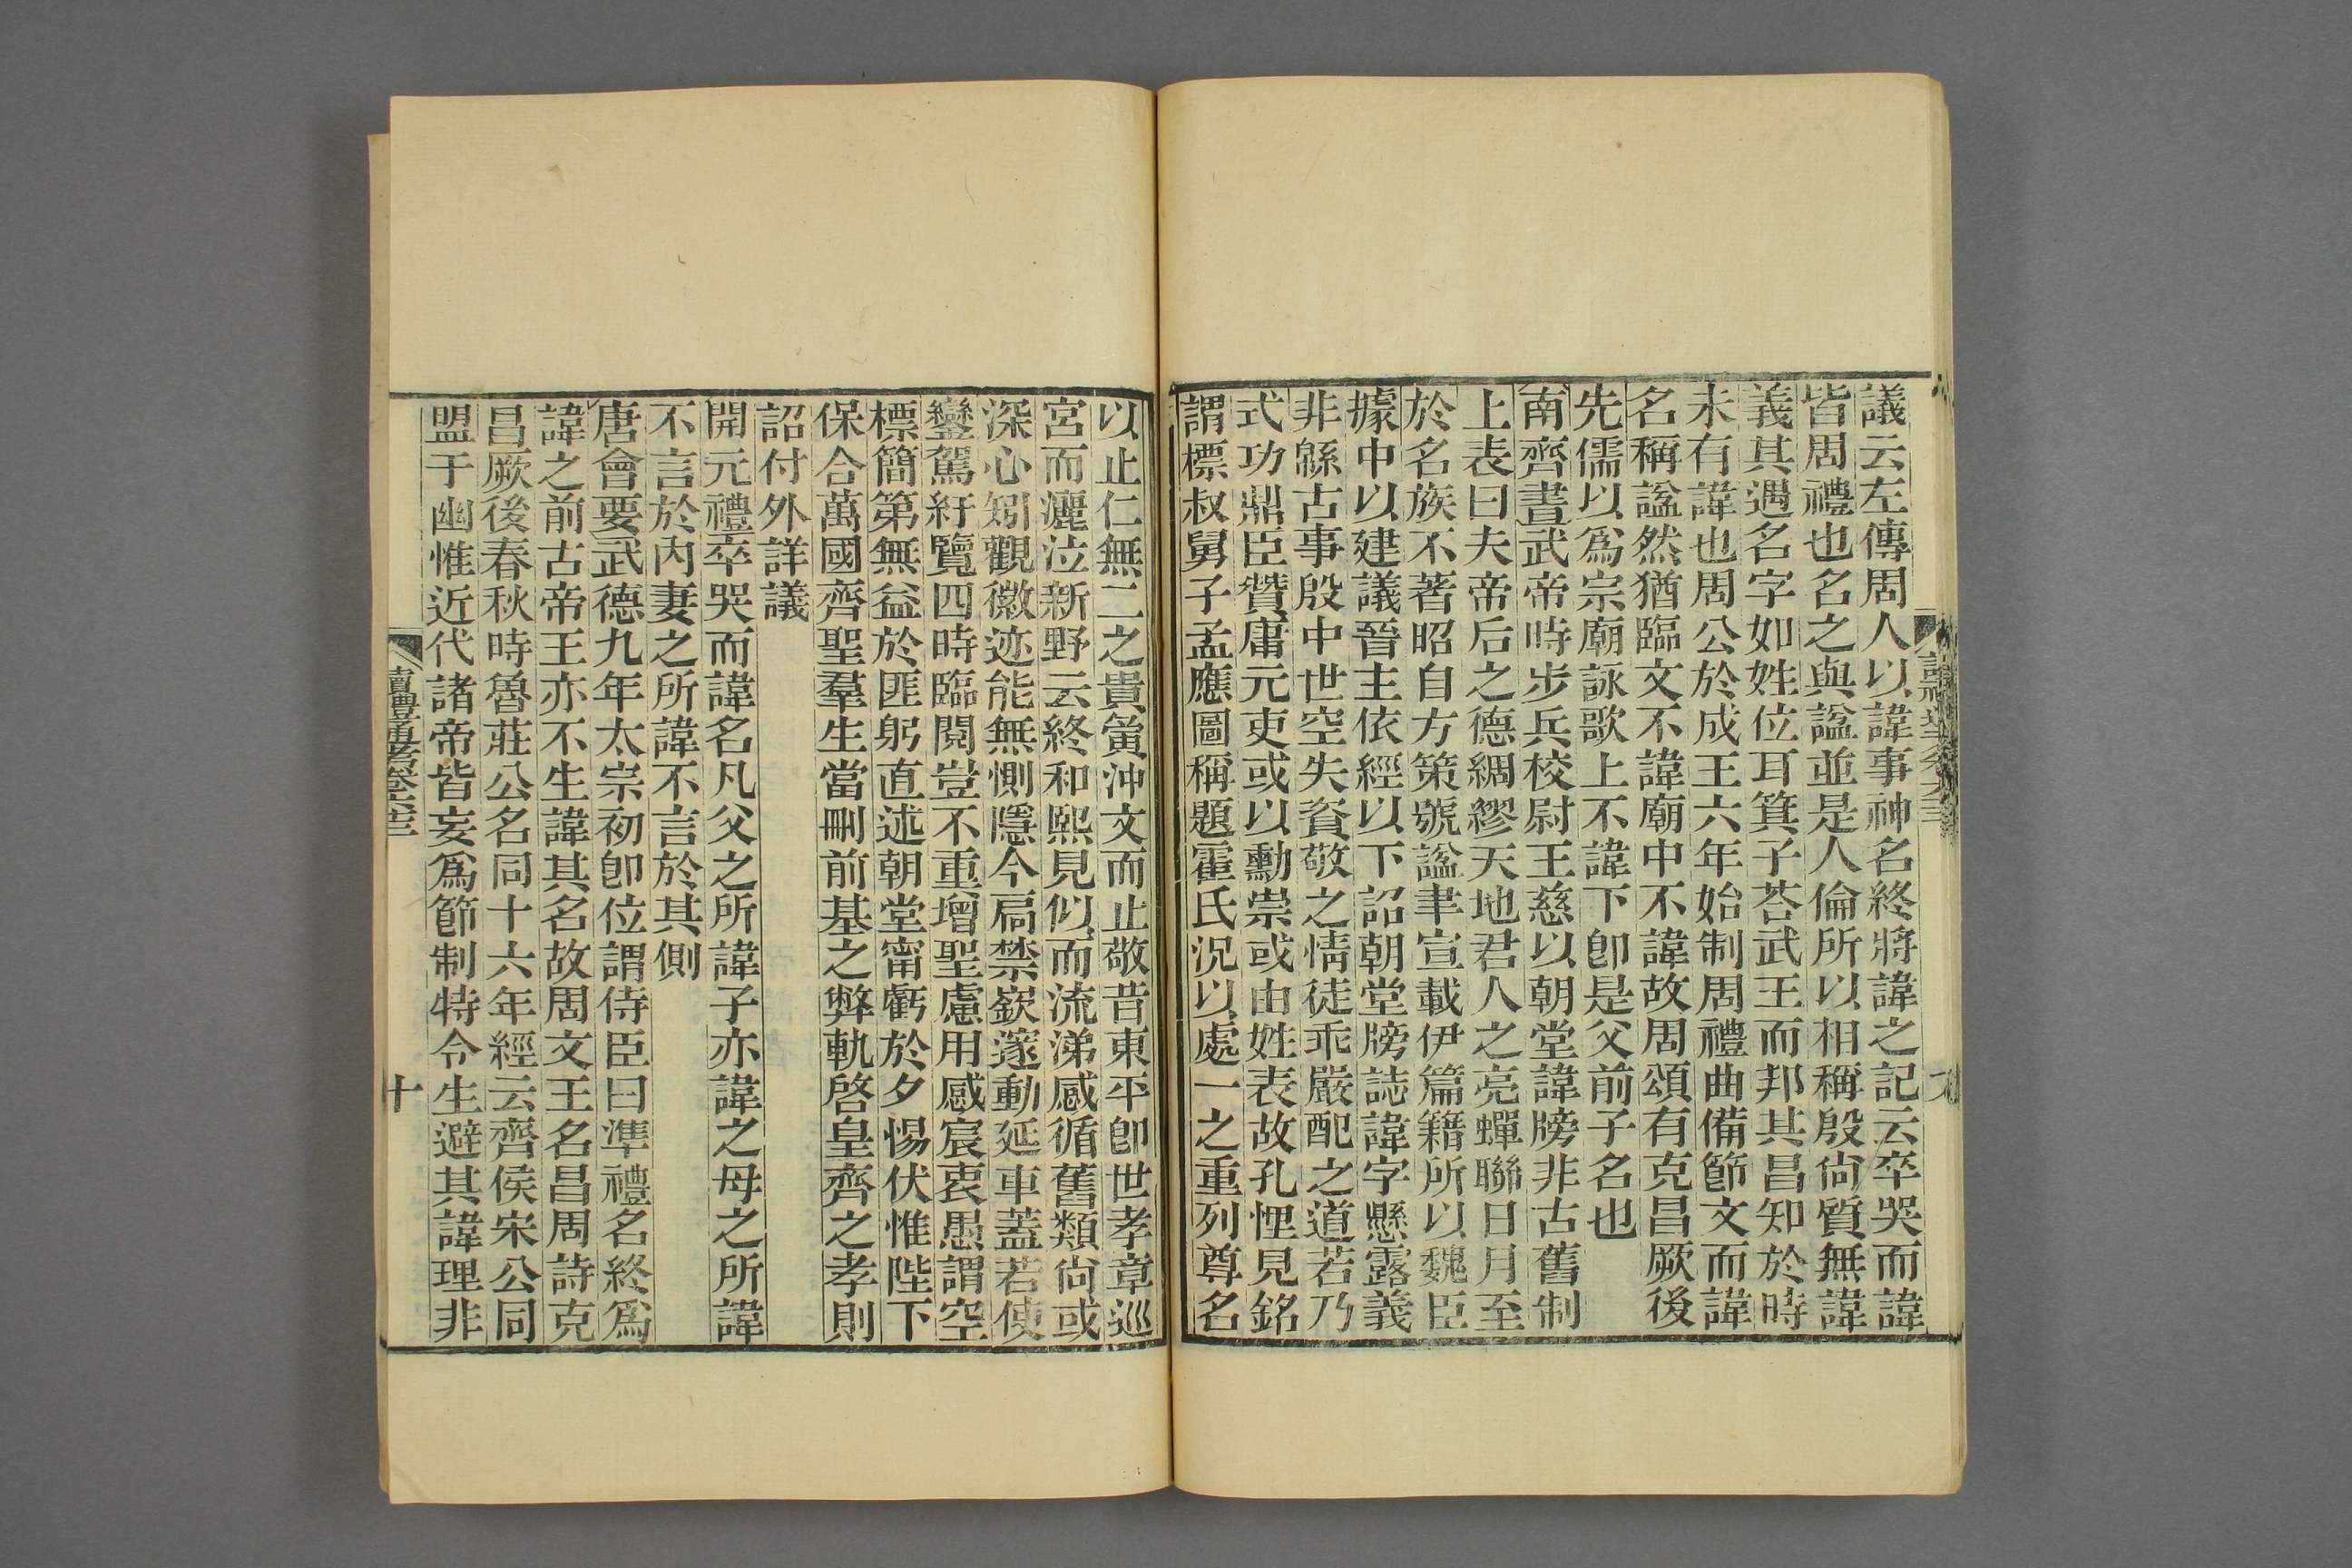 議云左傳周人以諱事神名終將諱之記云卒哭而諱
皆周禮也名之與諡並是人倫所以相稱殷尙質無諱
義其遇名字如姓位耳箕子荅武王而邦其昌知於時
未有諱也周公於成王六年始制周禮曲備節文而諱
名稱諡然猶臨文不諱廟中不諱故周頌有克昌厥後
先儒以爲宗廟詠歌上不諱下卽是父前子名也
南齊書武帝時步兵校尉王慈以朝堂諱牓非古舊制
上表曰夫帝后之德綢繆天地君人之亮蟬聯日月至
於名族不著昭自方策號諡聿宣載伊篇籍所以魏臣
據中以建議晉主依經以下詔朝堂牓誌諱字懸露義
非緜古事殷中世空失資敬之情徒乖嚴配之道若乃
式功鼎臣贊庸元吏或以勳崇或由姓表故孔悝見銘
謂標叔舅子孟應圖稱題霍氏況以處一之重列尊名
以止仁無二之貴夤沖文而止敬昔東平卽世孝章巡
宮而灑泣新野云終和熙見似而流涕感循舊類尙或
深心矧觀徽迹能無惻隱今扃禁嶔邃動延車蓋若使
鑾駕紆覽四時臨閱豈不重增聖慮用感宸衷愚謂空
標簡第無益於匪躬直述朝堂甯虧於夕惕伏惟陛下
保合萬國齊聖羣生當刪前基之弊軌啓皇齊之孝則
詔付外詳議
開元禮卒哭而諱名凡父之所諱子亦諱之母之所諱
不言於內妻之所諱不言於其側
唐會要武德九年太宗初卽位謂侍臣曰準禮名終爲
諱之前古帝王亦不生諱其名故周文王名昌周詩克
昌厥後春秋時魯莊公名同十六年經云齊侯宋公同
盟于幽惟近代諸帝皆妄爲節制特令生避其諱理非
讀禮通考卷六十三
十